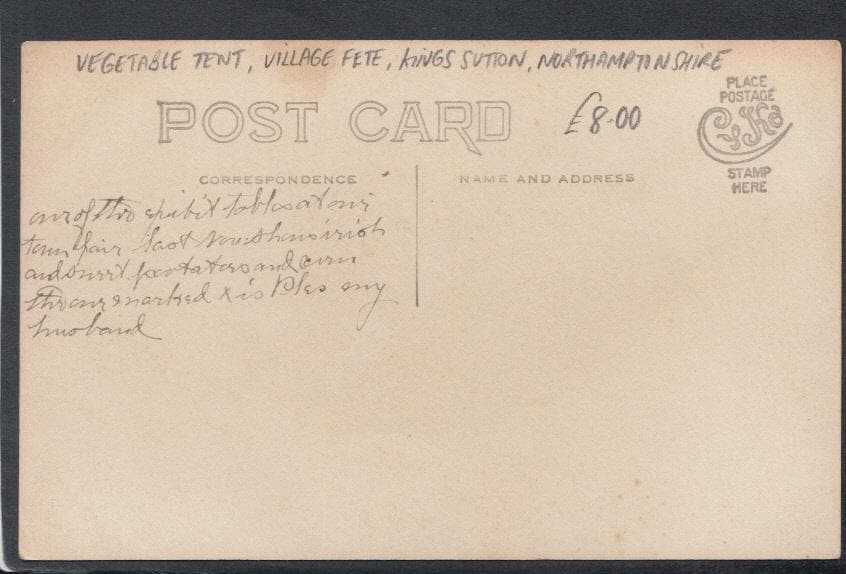 VEGETABLE TENT, VILLAGE FETE, KINGS SUTTON, NORTHAMPTONSHIRE
POST CARD
£8.00
PLACE
POSTAGE
CyKo
STAMP
HERE
CORRESPONDENCE
NAME AND ADDRESS
one of the exibit tables at our
town fair last Nov shows irish
and sweet potatoes and corn
the one marked x is my
husband